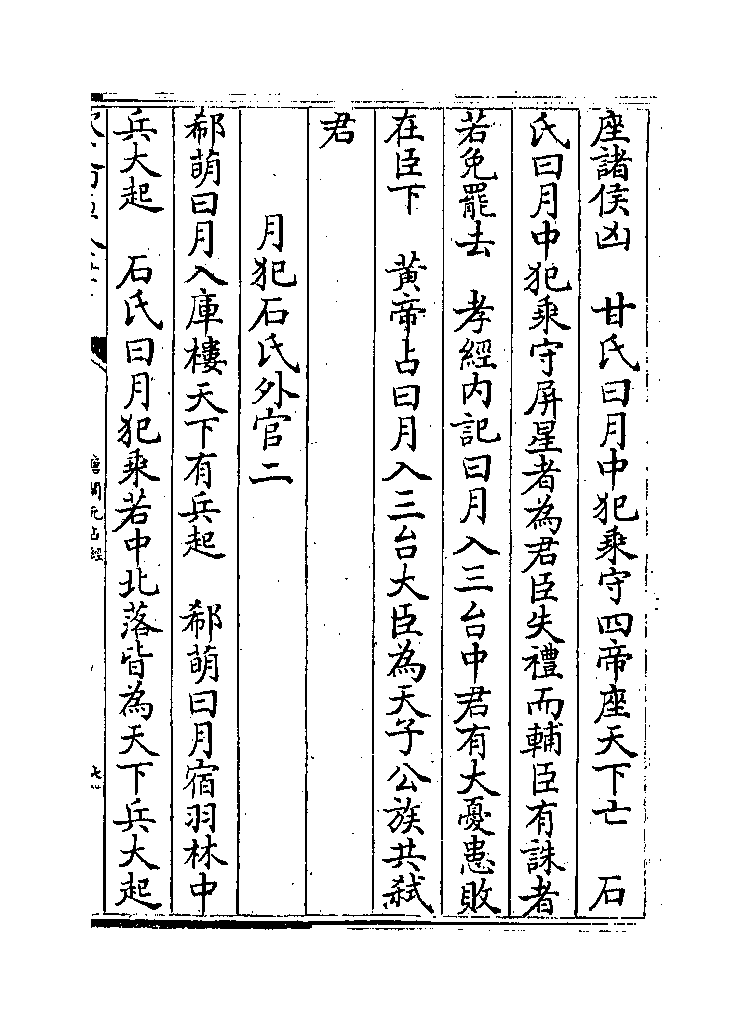 座諸侯凶　甘氏曰月中犯乘守四帝座天下亡　石
氏曰月中犯乘守屏星者為君臣失禮而輔臣有誅者
若免罷去　孝經內記曰月入三台中君有大憂患敗
在臣下　黃帝占曰月入三台大臣為天子公族共弑
君
月犯石氏外官二
郗萌曰月入庫樓天下有兵起　郗萌曰月宿羽林中
兵大起　石氏曰月犯乘若中北落皆為天下兵大起
唐開元占經